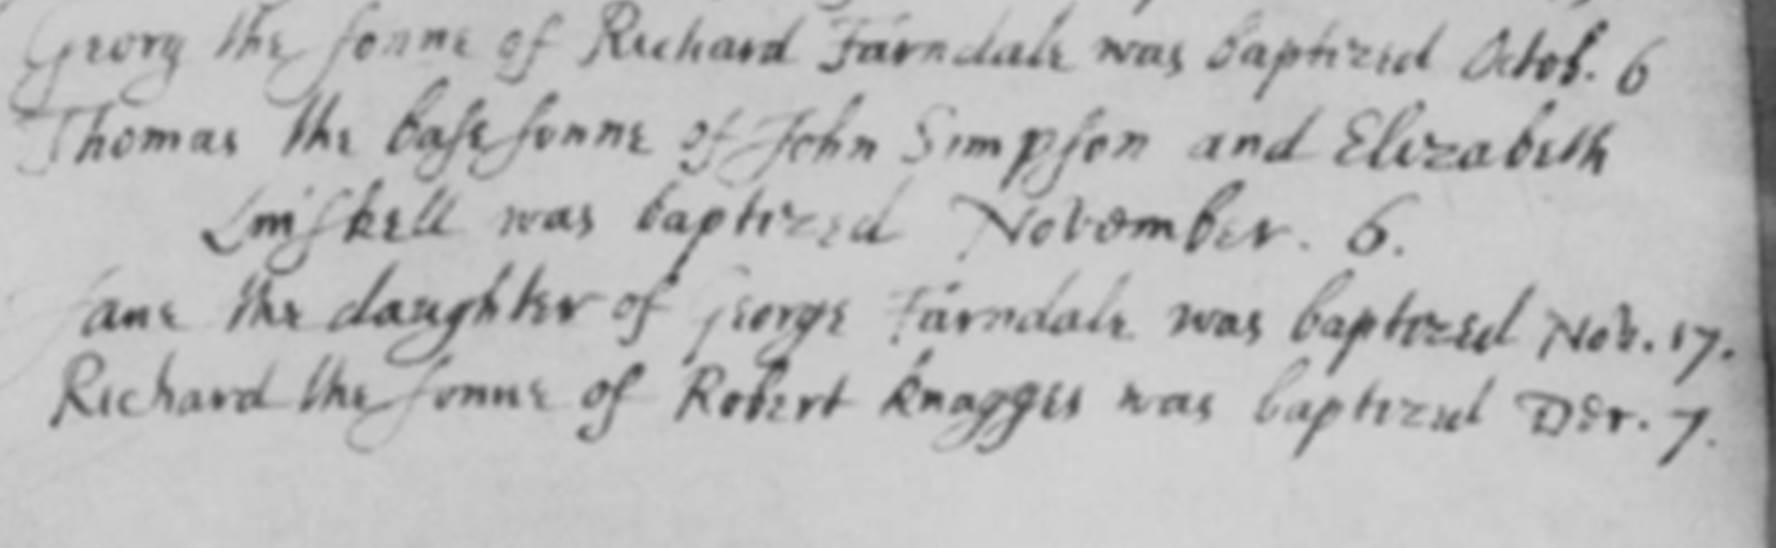 Georg the sonne of Richard Farndale was baptized Octob. 6
Thomas the base sonne of John Simpson and Elizabeth
Liniskell was baptized November. 6.
Jane the daughter of George Farndale was baptized Nov. 17.
Richard the sonne of Robert Knagges was baptized Dec. 7.